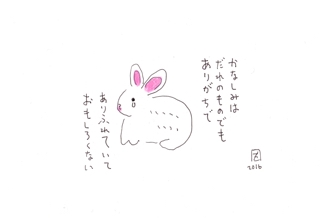 かなしみは
だれのものでも
ありがちで
ありふれていて
おもしろくない
2016